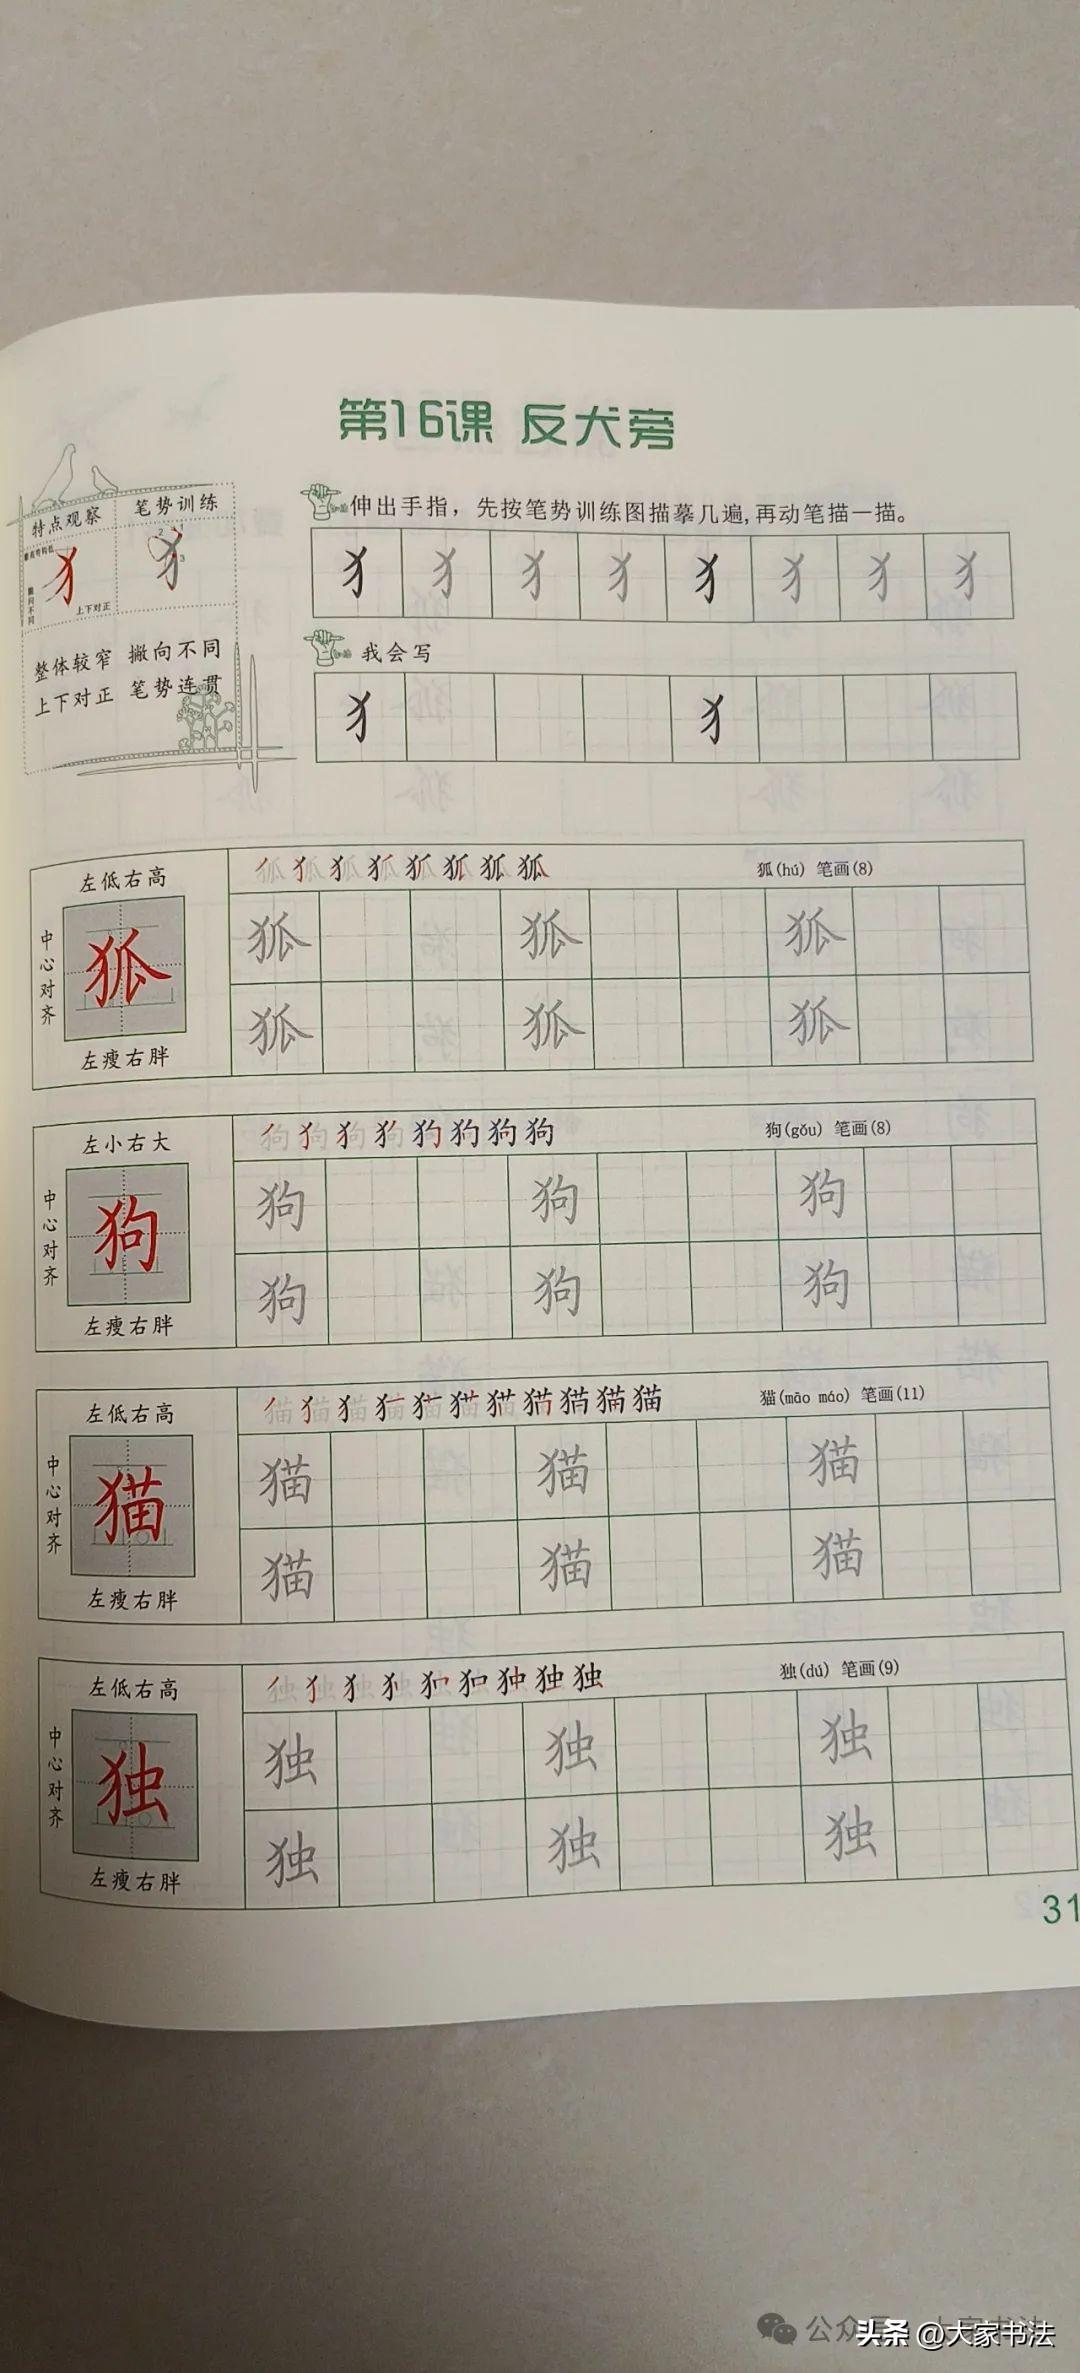 第16课 反犬旁
特点观察 笔势训练
犭 犭
上下对正
整体较窄 撇向不同
上下对正 笔势连贯
伸出手指，先按笔势训练图描摹几遍,再动笔描一描。
犭 犭 犭 犭 犭 犭 犭 犭
我会写
犭 犭
左低右高
中心对齐
狐
左瘦右胖
狐(hú) 笔画(8)
狐 狐 狐
狐 狐 狐
左小右大
中心对齐
狗
左瘦右胖
狗(gǒu) 笔画(8)
狗 狗 狗
狗 狗 狗
左低右高
中心对齐
猫
左瘦右胖
猫(māo máo) 笔画(11)
猫 猫 猫
猫 猫 猫
左低右高
中心对齐
独
左瘦右胖
独(dú) 笔画(9)
独 独 独
独 独 独
31
头条 @大家书法